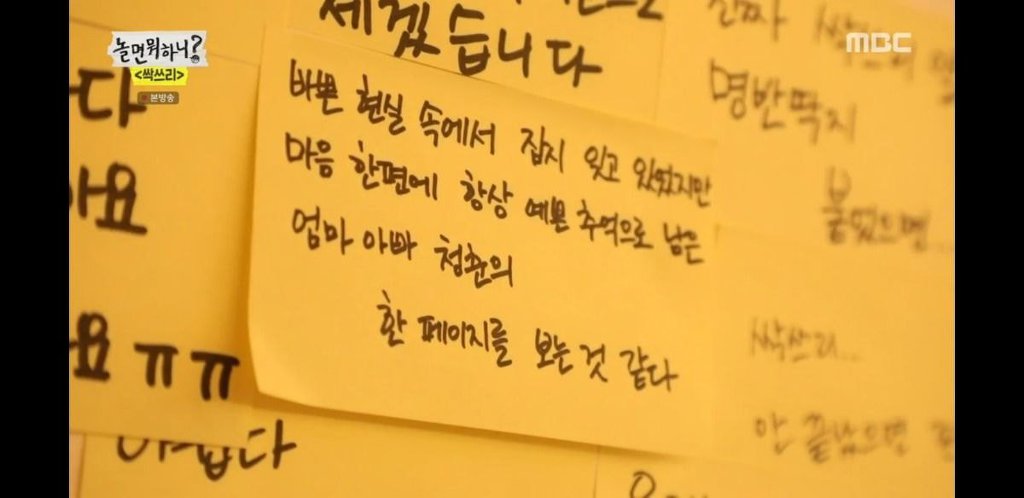 놀면뭐하니?
<싹쓰리>
본방송
MBC
세겠습니다
바쁜 현실 속에서 잠시 잊고 있었지만
마음 한편에 항상 예쁜 추억으로 남은
엄마 아빠 청춘의
한 페이지를 보는 것 같다
명반딱지
붙였으면...
싹쓰리...
안 끝났으면
요ㅠㅠ
아쉽다